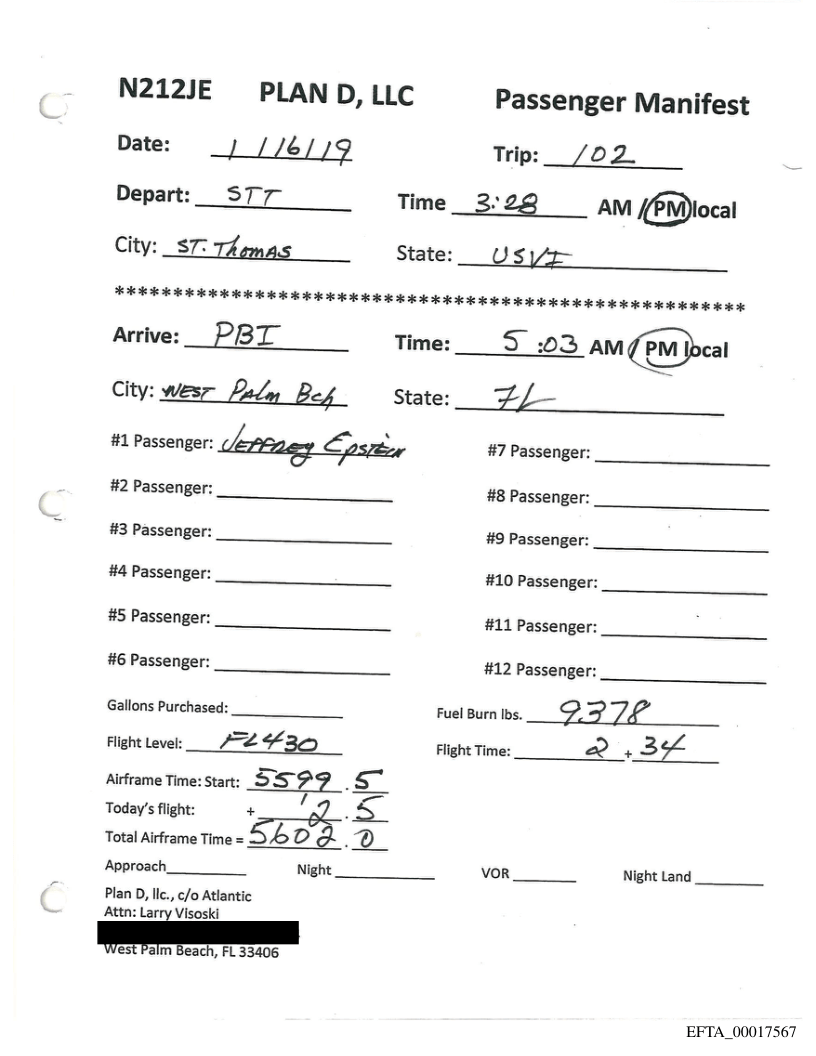 N212JE PLAN D, LLC Passenger Manifest
Date: 1/16/19 Trip: 102
Depart: STT Time 3:28 AM / PM local
City: ST. Thomas State: USVI
******************************************************
Arrive: PBI Time: 5:03 AM / PM local
City: WEST Palm Bch State: FL
#1 Passenger: Jeffrey Epstein #7 Passenger:
#2 Passenger: #8 Passenger:
#3 Passenger: #9 Passenger:
#4 Passenger: #10 Passenger:
#5 Passenger: #11 Passenger:
#6 Passenger: #12 Passenger:
Gallons Purchased: Fuel Burn lbs. 9378
Flight Level: FL430 Flight Time: 2 + 34
Airframe Time: Start: 5599.5
Today's flight: + 2.5
Total Airframe Time = 5602.0
Approach Night VOR Night Land
Plan D, llc., c/o Atlantic
Attn: Larry Visoski
West Palm Beach, FL 33406
EFTA_00017567